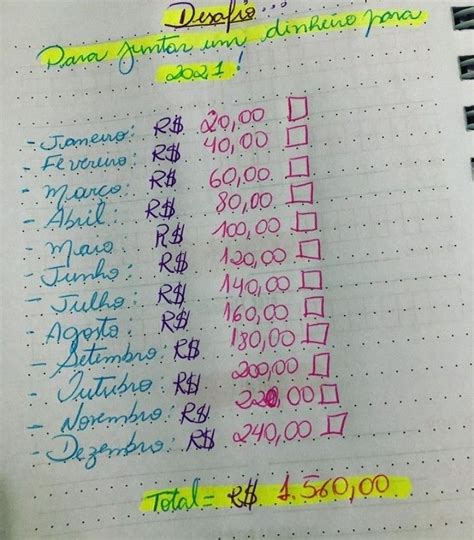 Desafio...
Para juntar um dinheiro para
2021!
- Janeiro: R$ 20,00
- Fevereiro: R$ 40,00
- Março: R$ 60,00
- Abril: R$ 80,00
- Maio R$ 100,00
- Junho: R$ 120,00
- Julho: R$ 140,00
- Agosto: R$ 160,00
- Setembro: R$ 180,00
- Outubro: R$ 200,00
- Novembro: R$ 220,00
- Dezembro: R$ 240,00
Total = R$ 1.560,00